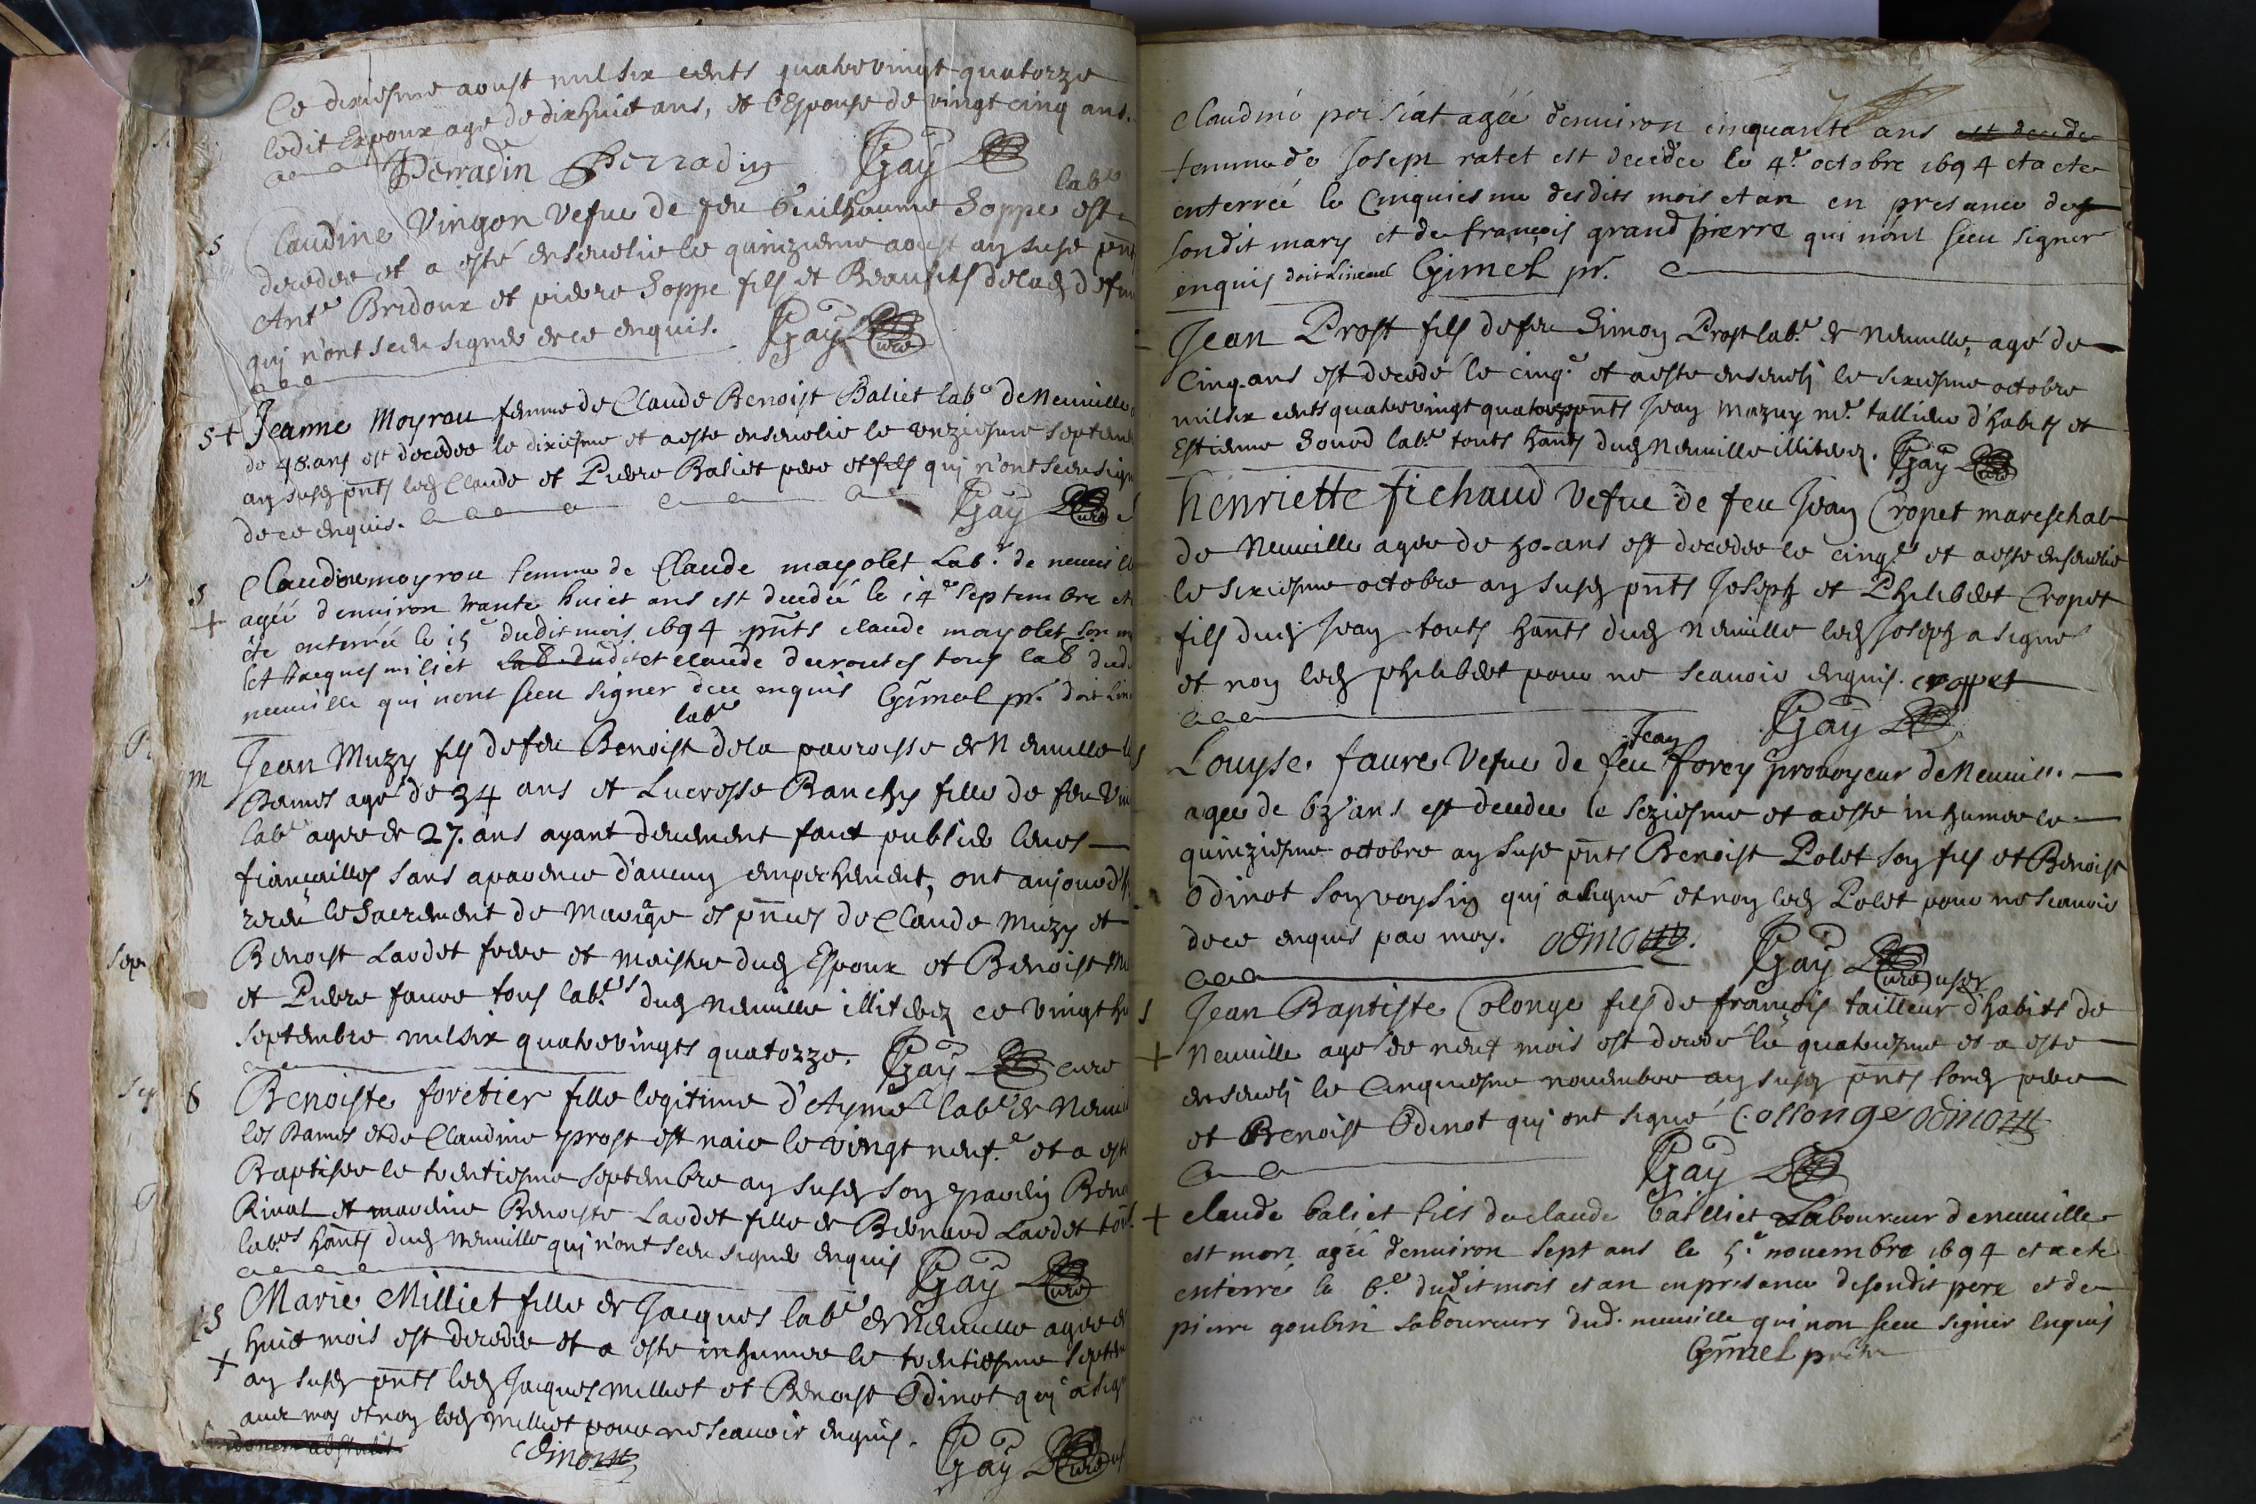 Ce dixiesme aoust mil six cents quatre vingt quatorze
ledit Espoux agé de dix huict ans, et l'Espouse de vingt cinq ans.
Perradin Perradin Gay
labr
S Claudine Vingon vefue de feu Guilhaume Soppe est
decedee et a esté ensevelie le quinzieme aoust an susd pnts
Ante Bridoux et pierre Soppe fils et Beaufils de lad defun
qui n'ont sceu signer de ce enquis. Gay curé
S + Jeanne Moyrou femme de Claude Benoist Baliet labr de Neuville
de 48. ans est decedee le dixiesme et a este ensevelie le unziesme septem
an susd pnts led Claude et Pierre Baliet pere et fils qui n'ont sceu sign
de ce enquis. Gay curé
S Claudine moyrou femme de Claude mayolet Lab. de neuville
+ agée d'enuiron trante huict ans est decedée le 14e septembre et
été enterrée le 15e dudit mois 1694 pnts claude mayolet son m
et Jacques miliet et claude decroutes tous lab dud
neuville qui nont sceu signer de ce enquis Gimel pr.
labr
m Jean Muzy fils de feu Benoist de la parroisse de Neuville les
Dames agé de 34 ans et Lucresse Banchy fille de feu Vin
labr agee de 27. ans ayant deuement faict publier leurs
fiançailles sans aparence d'aucun empechement, ont aujourd'h
receu le Sacrement de Mariage es pnces de Claude Muzy et
Benoist Lardet frere et maistre dud Espoux et Benoist
et Pierre faure tous labrs dud Neuville illiterez ce vingt hu
septembre mil six quatre vingts quatorze. Gay curé
B Benoiste foretier fille legitime d'Aymé labr de Neuvi
les Dames et de Claudine prost est naie le vingt neufe et a esté
Baptisee le trentiesme septembre an susd son parrein Beno
Rinat et marreine Benoiste Lardet fille de Bernard Lardet tous
labrs hants dud Neuville qui n'ont sceu signer enquis Gay curé
S Marie Milliet fille de Jacques labr de Neuville agee de
+ huict mois est decedee et a este inhumee le trentiesme septem
an susd pnts led Jacques Milliet et Benoist Odinot qui a sign
auec moy et non led Milliet pour ne scauoir enquis.
Odinot Gay curé
Claudine poisiat agée d'enuiron cinquante ans
femme de Josept ratet est decedee le 4e octobre 1694 et a ete
enterrée le Cinquiesme desdits mois et an en presance de
sondit mary et de françois grand pierre qui n'ont sceu signer
enquis Gimel pr.
Jean Prost fils de feu Simon Prost labr de Neuville, agé de
Cinq ans est decedé le cinqe et a este enseveli le sixiesme octobre
mil six cents quatre vingt quatorze pnts Jean Mazuy me tallieur d'habits et
Estienne Soued labr touts hants dud Neuville illiterez. Gay curé
henriette fichaud Vefue de feu Jean Cropet mareschal
de Neuville agee de 70. ans est decedee le cinqe et a este ensevelie
le sixiesme octobre an susd pnts Joseph et Philibert Cropet
fils dud Jean touts hants dud Neuville led Joseph a signé
et non led philibert pour ne scauoir enquis. croppet
Gay
Jean
Louyse faure Vefue de feu forey prouoyeur de Neuville
agee de 63 ans est decedee le seziesme et a este inhumee le
quinziesme octobre an susd pnts Benoist Polet son fils et Benoist
Odinot son voysin qui a signé et non led Polet pour ne scauoir
de ce enquis par moy. odinot. Gay curé
S Jean Baptiste Colonge fils de françois tailleur d'habits de
+ Neuville agé de neuf mois est decedé le quatriesme et a este
enseveli le Cinquiesme nouembre an susd pnts sond pere
et Benoist Odinot qui ont signé Collonge odinot
Gay
+ claude baliet fils de claude bailliet Laboureur de neuuille
est mort agée d'enuiron sept ans le 5e nouembre 1694 et a ete
enterré le 6e dudit mois et an en presance de sondit pere et de
pierre goubin laboureurs dud. neuuille qui non sceu signer enquis
Gimel pretre